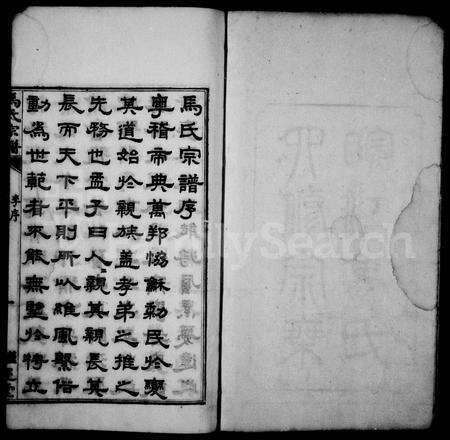 馬氏宗譜序
粤稽帝典萬邦協龢勒民於變
其道始於親族蓋孝弟之推之
先務也孟子曰人人親其親長其
長而天下平則所以維風繫俗
動為世範者不能無望於特立
馬氏宗譜
李序
FamilySearch